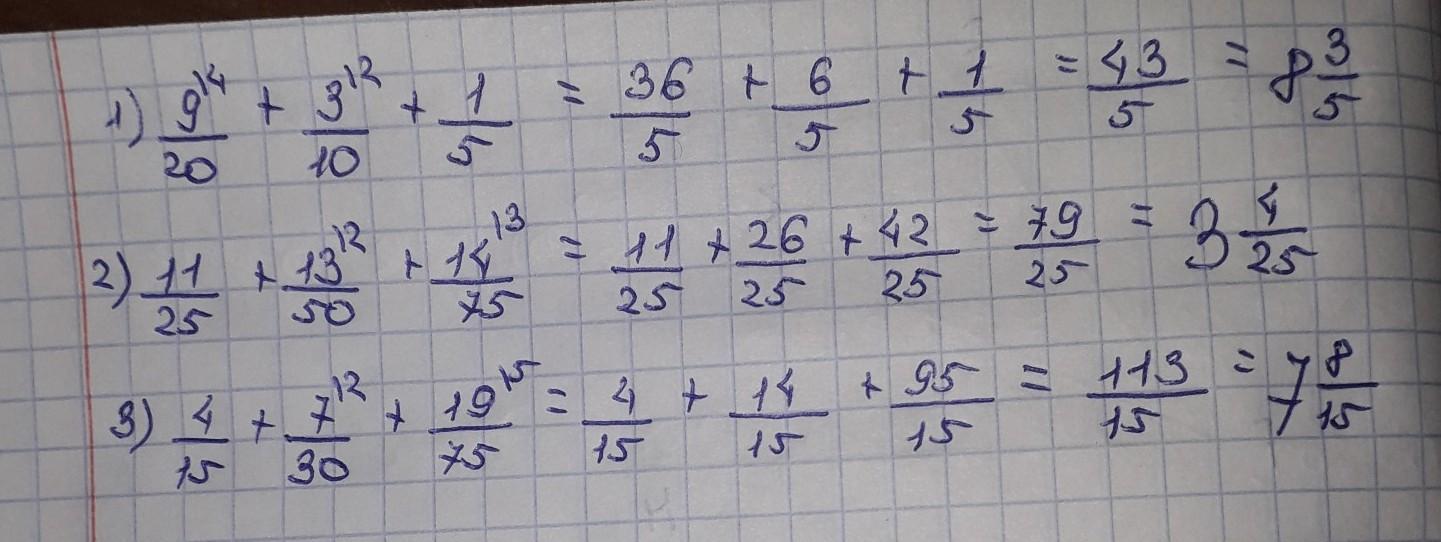 1) 9^{14}/20 + 3^{12}/10 + 1/5 = 36/5 + 6/5 + 1/5 = 43/5 = 8 3/5
2) 11/25 + 13^{12}/50 + 14^{13}/75 = 11/25 + 26/25 + 42/25 = 79/25 = 3 4/25
3) 4/15 + 7^{12}/30 + 19^{15}/75 = 4/15 + 14/15 + 95/15 = 113/15 = 7 8/15